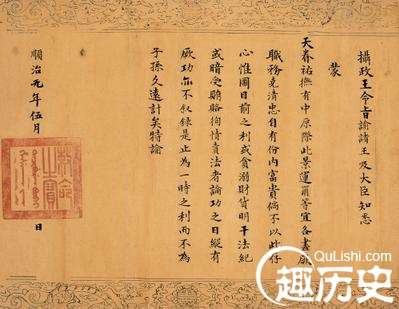 攝政王令旨諭諸王及大臣知悉
蒙
天眷祐撫有中原際此景運爾等宜各盡厥
職務克清忠自有份內富貴倘不以此存
心惟圖目前之利或貪溺財貨明干法紀
或暗受賄賂徇情責法者論功之日縱有
厥功亦不敘錄是止為一時之利而不為
子孫久遠計矣特諭
順治元年伍月 日
QuLishi.com
趣历史